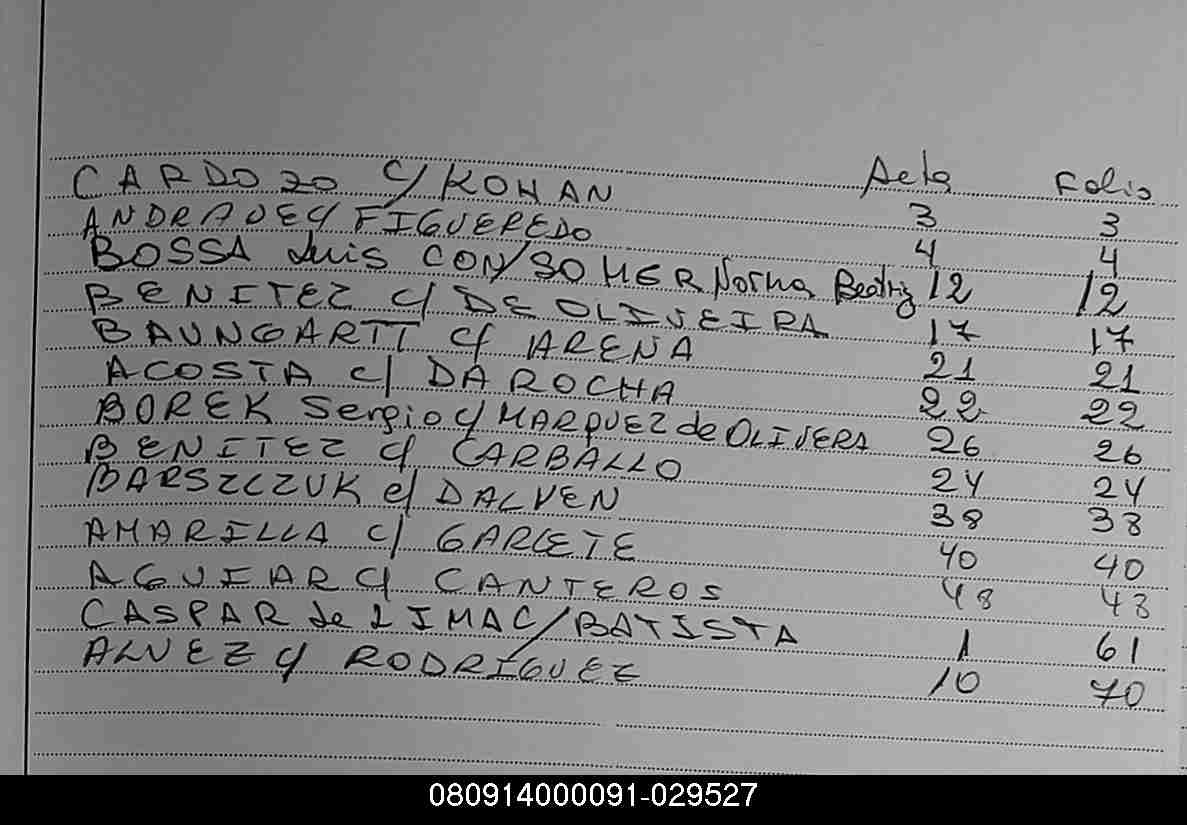 Acta Folio
CARDOZO c/ KOHAN 3 3
ANDRADE c/ FIGUEREDO 4 4
BOSSA Luis CON/ SOMER Norma Beatriz 12 12
BENITEZ c/ DE OLIVEIRA 17 17
BAUNGARTT c/ ARENA 21 21
ACOSTA c/ DA ROCHA 22 22
BOREK Sergio c/ MARQUEZ de OLIVERA 26 26
BENITEZ c/ CARBALLO 24 24
BARSZCZUK c/ DALVEN 38 38
AMARILLA c/ GARCETE 40 40
AGUIAR c/ CANTEROS 48 48
CASPAR de LIMA C/ BATISTA 1 61
ALVEZ c/ RODRIGUEZ 10 70
080914000091-029527